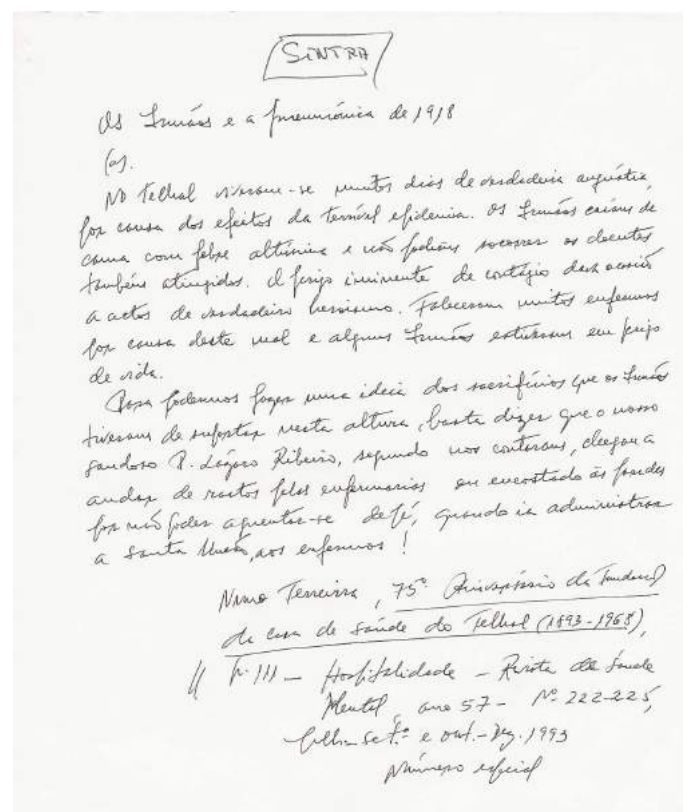 SINTRA
Os Irmãos e a pneumónica de 1918
(a).
No Telhal viveram-se muitos dias de verdadeira angústia,
por causa dos efeitos da terrível epidemia. Os Irmãos caíam de
cama com febre altíssima e não podiam socorrer os doentes
também atingidos. O perigo iminente de contágio dava ocasião
a actos de verdadeiro heroísmo. Faleceram muitos enfermos
por causa deste mal e alguns Irmãos estiveram em perigo
de vida.
Para podermos fazer uma ideia dos sacrifícios que os Irmãos
tiveram de suportar nesta altura, basta dizer que o nosso
saudoso P. Lázaro Ribeiro, segundo nos contaram, chegou a
andar de rastos pelas enfermarias ou encostado às paredes
por não poder aguentar-se de pé, quando ia administrar
a Santa Unção, aos enfermos!
Nuno Ferreira, 75º Aniversário da Fundação
da casa de saúde do Telhal (1893-1968),
p. 111 – Hospitalidade – Revista de Saúde
Mental, ano 57 – Nº 222-225,
Julho-Set.º e out.-Dez. 1993
Número especial